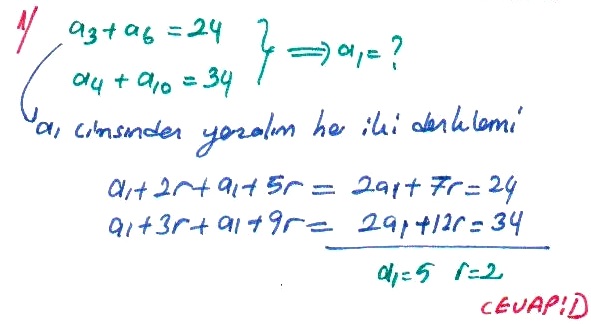 1/ a₃ + a₆ = 24
a₄ + a₁₀ = 34 } ⟹ a₁ = ?
a₁ cinsinden yazalım her iki denklemi
a₁ + 2r + a₁ + 5r = 2a₁ + 7r = 24
a₁ + 3r + a₁ + 9r = 2a₁ + 12r = 34
a₁ = 5 r = 2
CEVAP: D